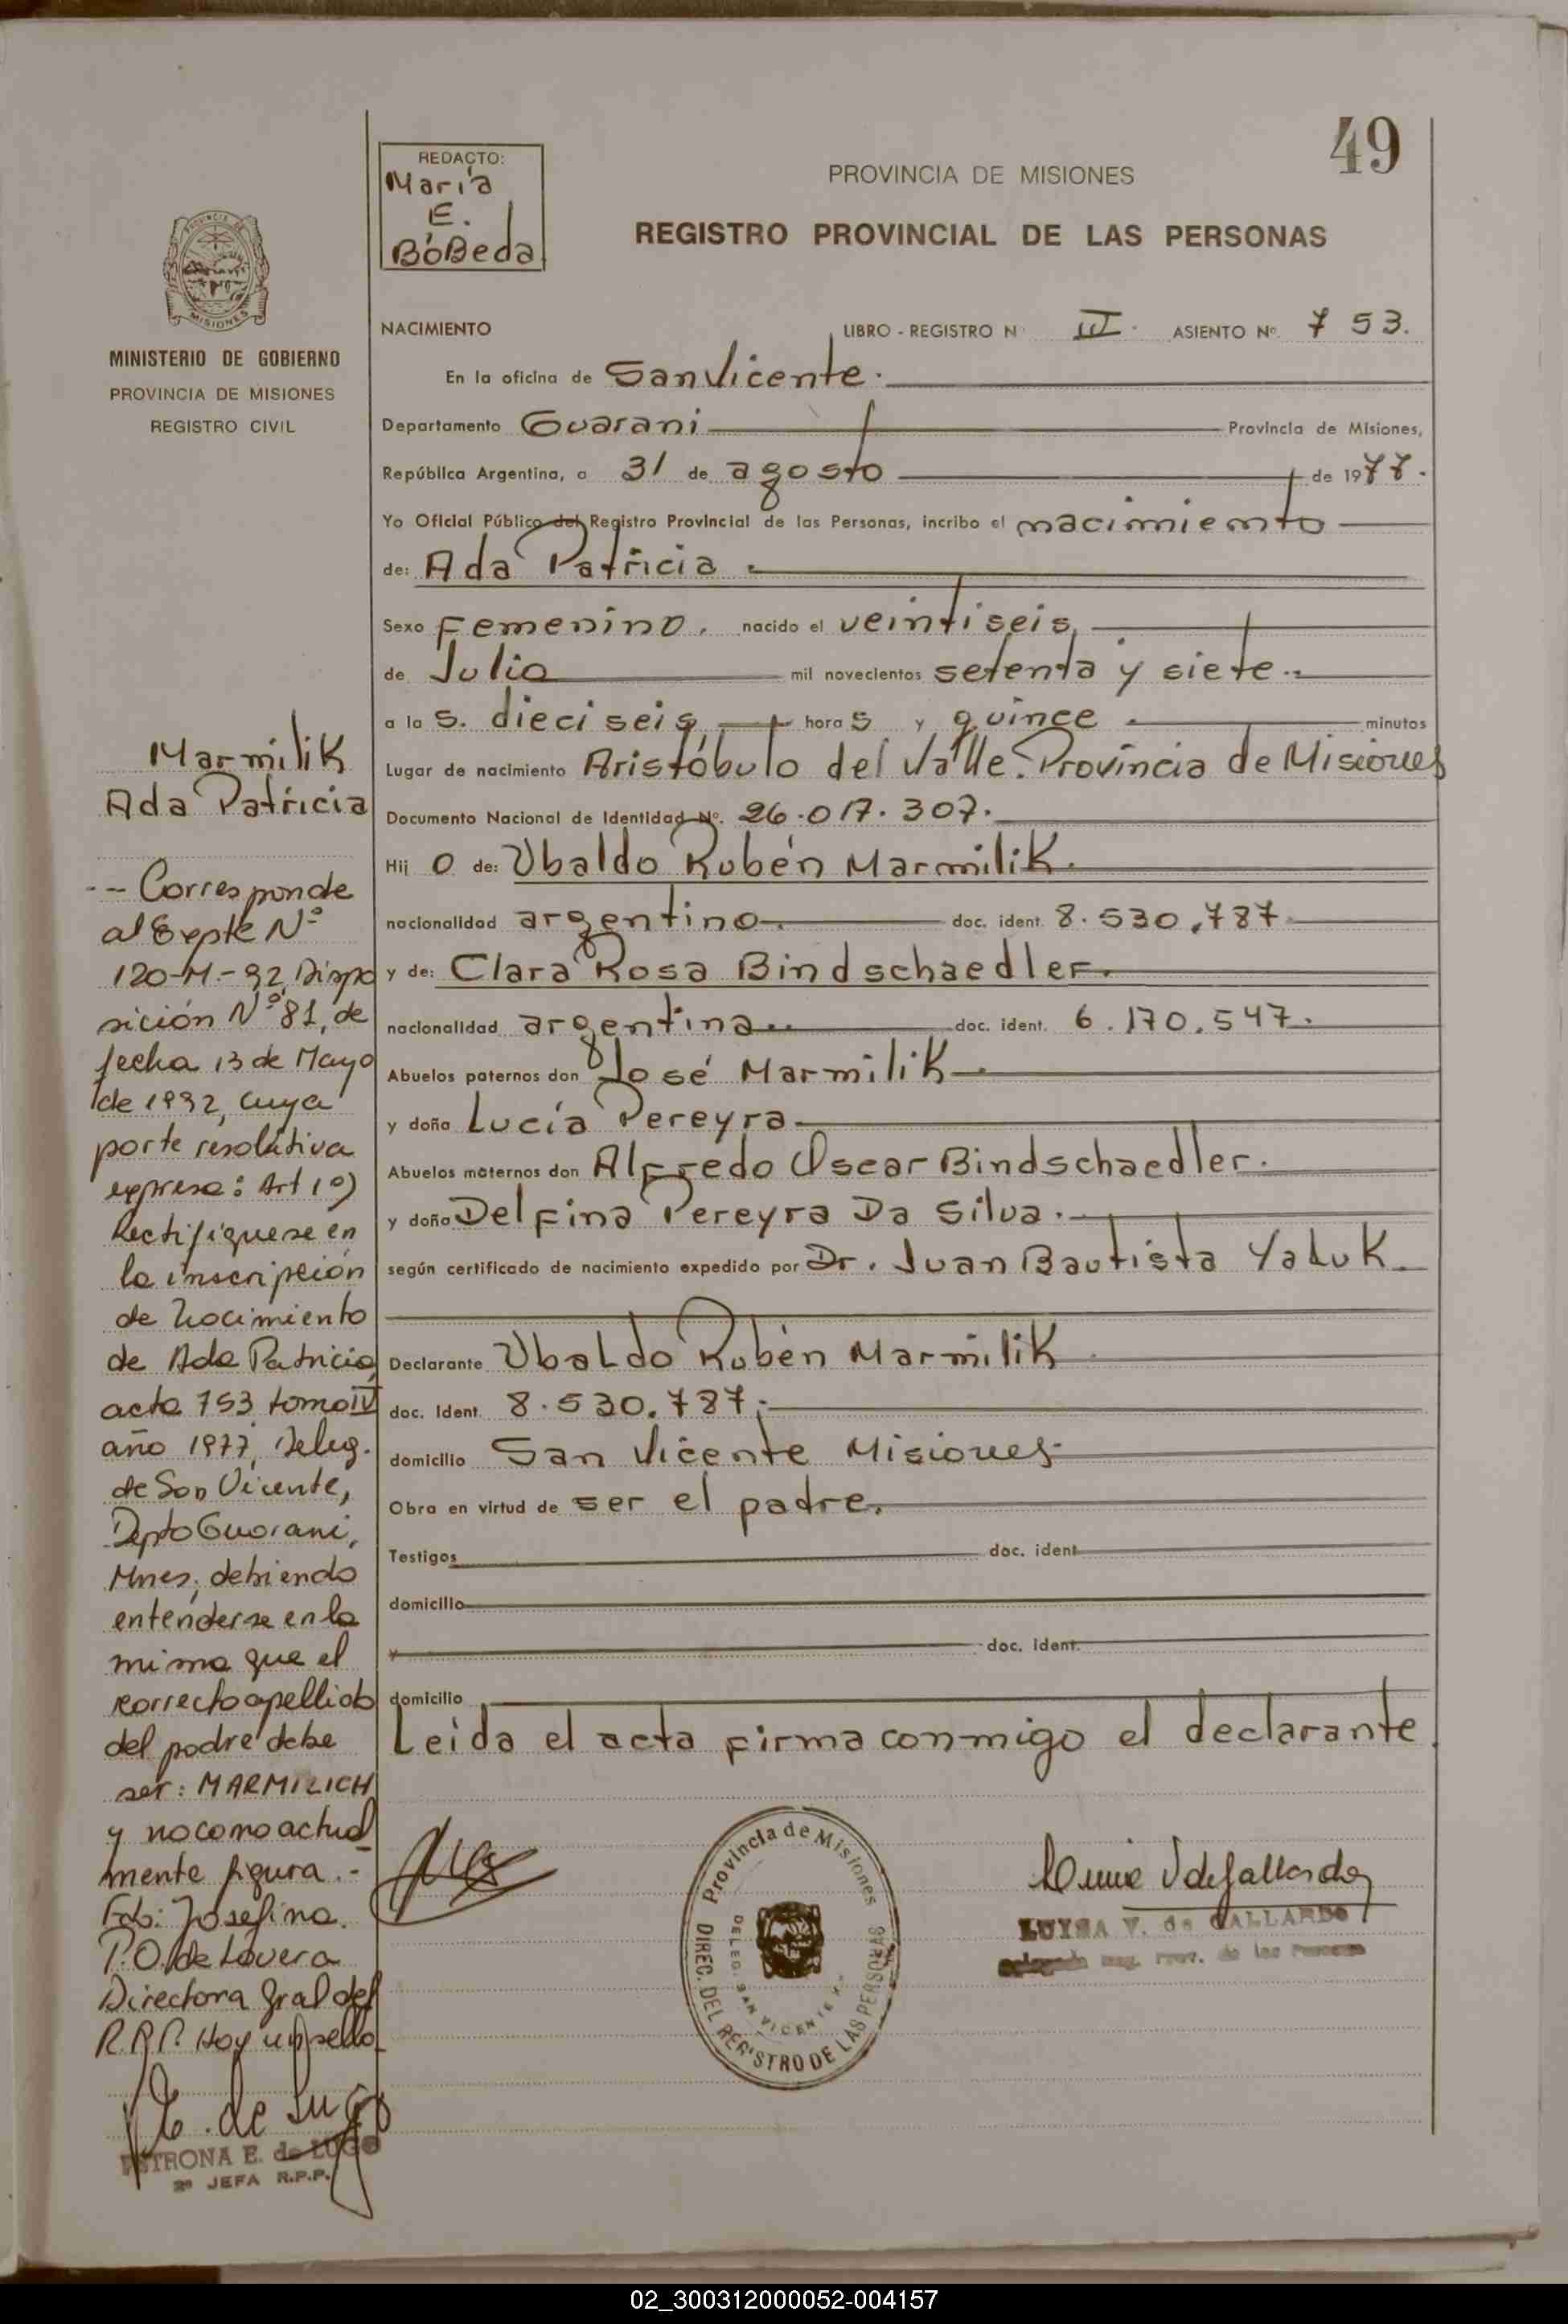 49
REDACTO:
María
E.
BóBeda
PROVINCIA DE MISIONES
REGISTRO PROVINCIAL DE LAS PERSONAS
PROVINCIA DE
MISIONES
MINISTERIO DE GOBIERNO
PROVINCIA DE MISIONES
REGISTRO CIVIL
NACIMIENTO LIBRO - REGISTRO N III. ASIENTO Nº. 753.
En la oficina de San Vicente.
Departamento Guarani Provincia de Misiones,
República Argentina, a 31 de agosto de 1977.
Yo Oficial Público del Registro Provincial de las Personas, incribo el nacimiento
de: Ada Patricia
Sexo Femenino. nacido el veintiseis
de Julio mil novecientos setenta y siete..
a las. dieciseis horas y quince minutos
Lugar de nacimiento Aristóbulo del Valle. Provincia de Misiones
Documento Nacional de Identidad Nº. 26.017.307.
Hijo de: Ubaldo Rubén Marmilik.
nacionalidad argentino doc. ident. 8.530.787
y de: Clara Rosa Bindschaedler.
nacionalidad argentina.. doc. ident. 6.170.547.
Abuelos paternos don José Marmilik
y doña Lucía Pereyra
Abuelos maternos don Alfredo Oscar Bindschaedler.
y doña Delfina Pereyra Da Silva.
según certificado de nacimiento expedido por Dr. Juan Bautista Yaluk
Declarante Ubaldo Rubén Marmilik
doc. Ident. 8.530.787.
domicilio San Vicente Misiones
Obra en virtud de ser el padre.
Testigos doc. ident
domicilio
y doc. ident.
domicilio
Leida el acta firma conmigo el declarante.
Marmilik
Ada Patricia
-- Corresponde
al Expte Nº
120-M-92, Dispo
sición Nº 81, de
fecha 13 de Mayo
de 1992, cuya
parte resolutiva
expresa: Art 1º)
Rectifiquese en
la inscripción
de Nacimiento
de Ada Patricia,
acta 753 tomo IV
año 1977, Deleg.
de San Vicente,
Dpto Guarani,
Mnes; debiendo
entenderse en la
misma que el
correcto apellido
del padre debe
ser: MARMILICH
y no como actual
mente figura.-
Fdo: Josefina
P.O. de Lovera
Directora Gral del
R.P.P. Hay un sello
E. de Lugo
PETRONA E. de LUGO
2º JEFA R.P.P.
Provincia de Misiones
DIREC. DEL REGISTRO DE LAS PERSONAS
DELEG. SAN VICENTE
Luisa V de Gallardo
LUISA V. de GALLARDO
Prov. de las Personas
02_300312000052-004157